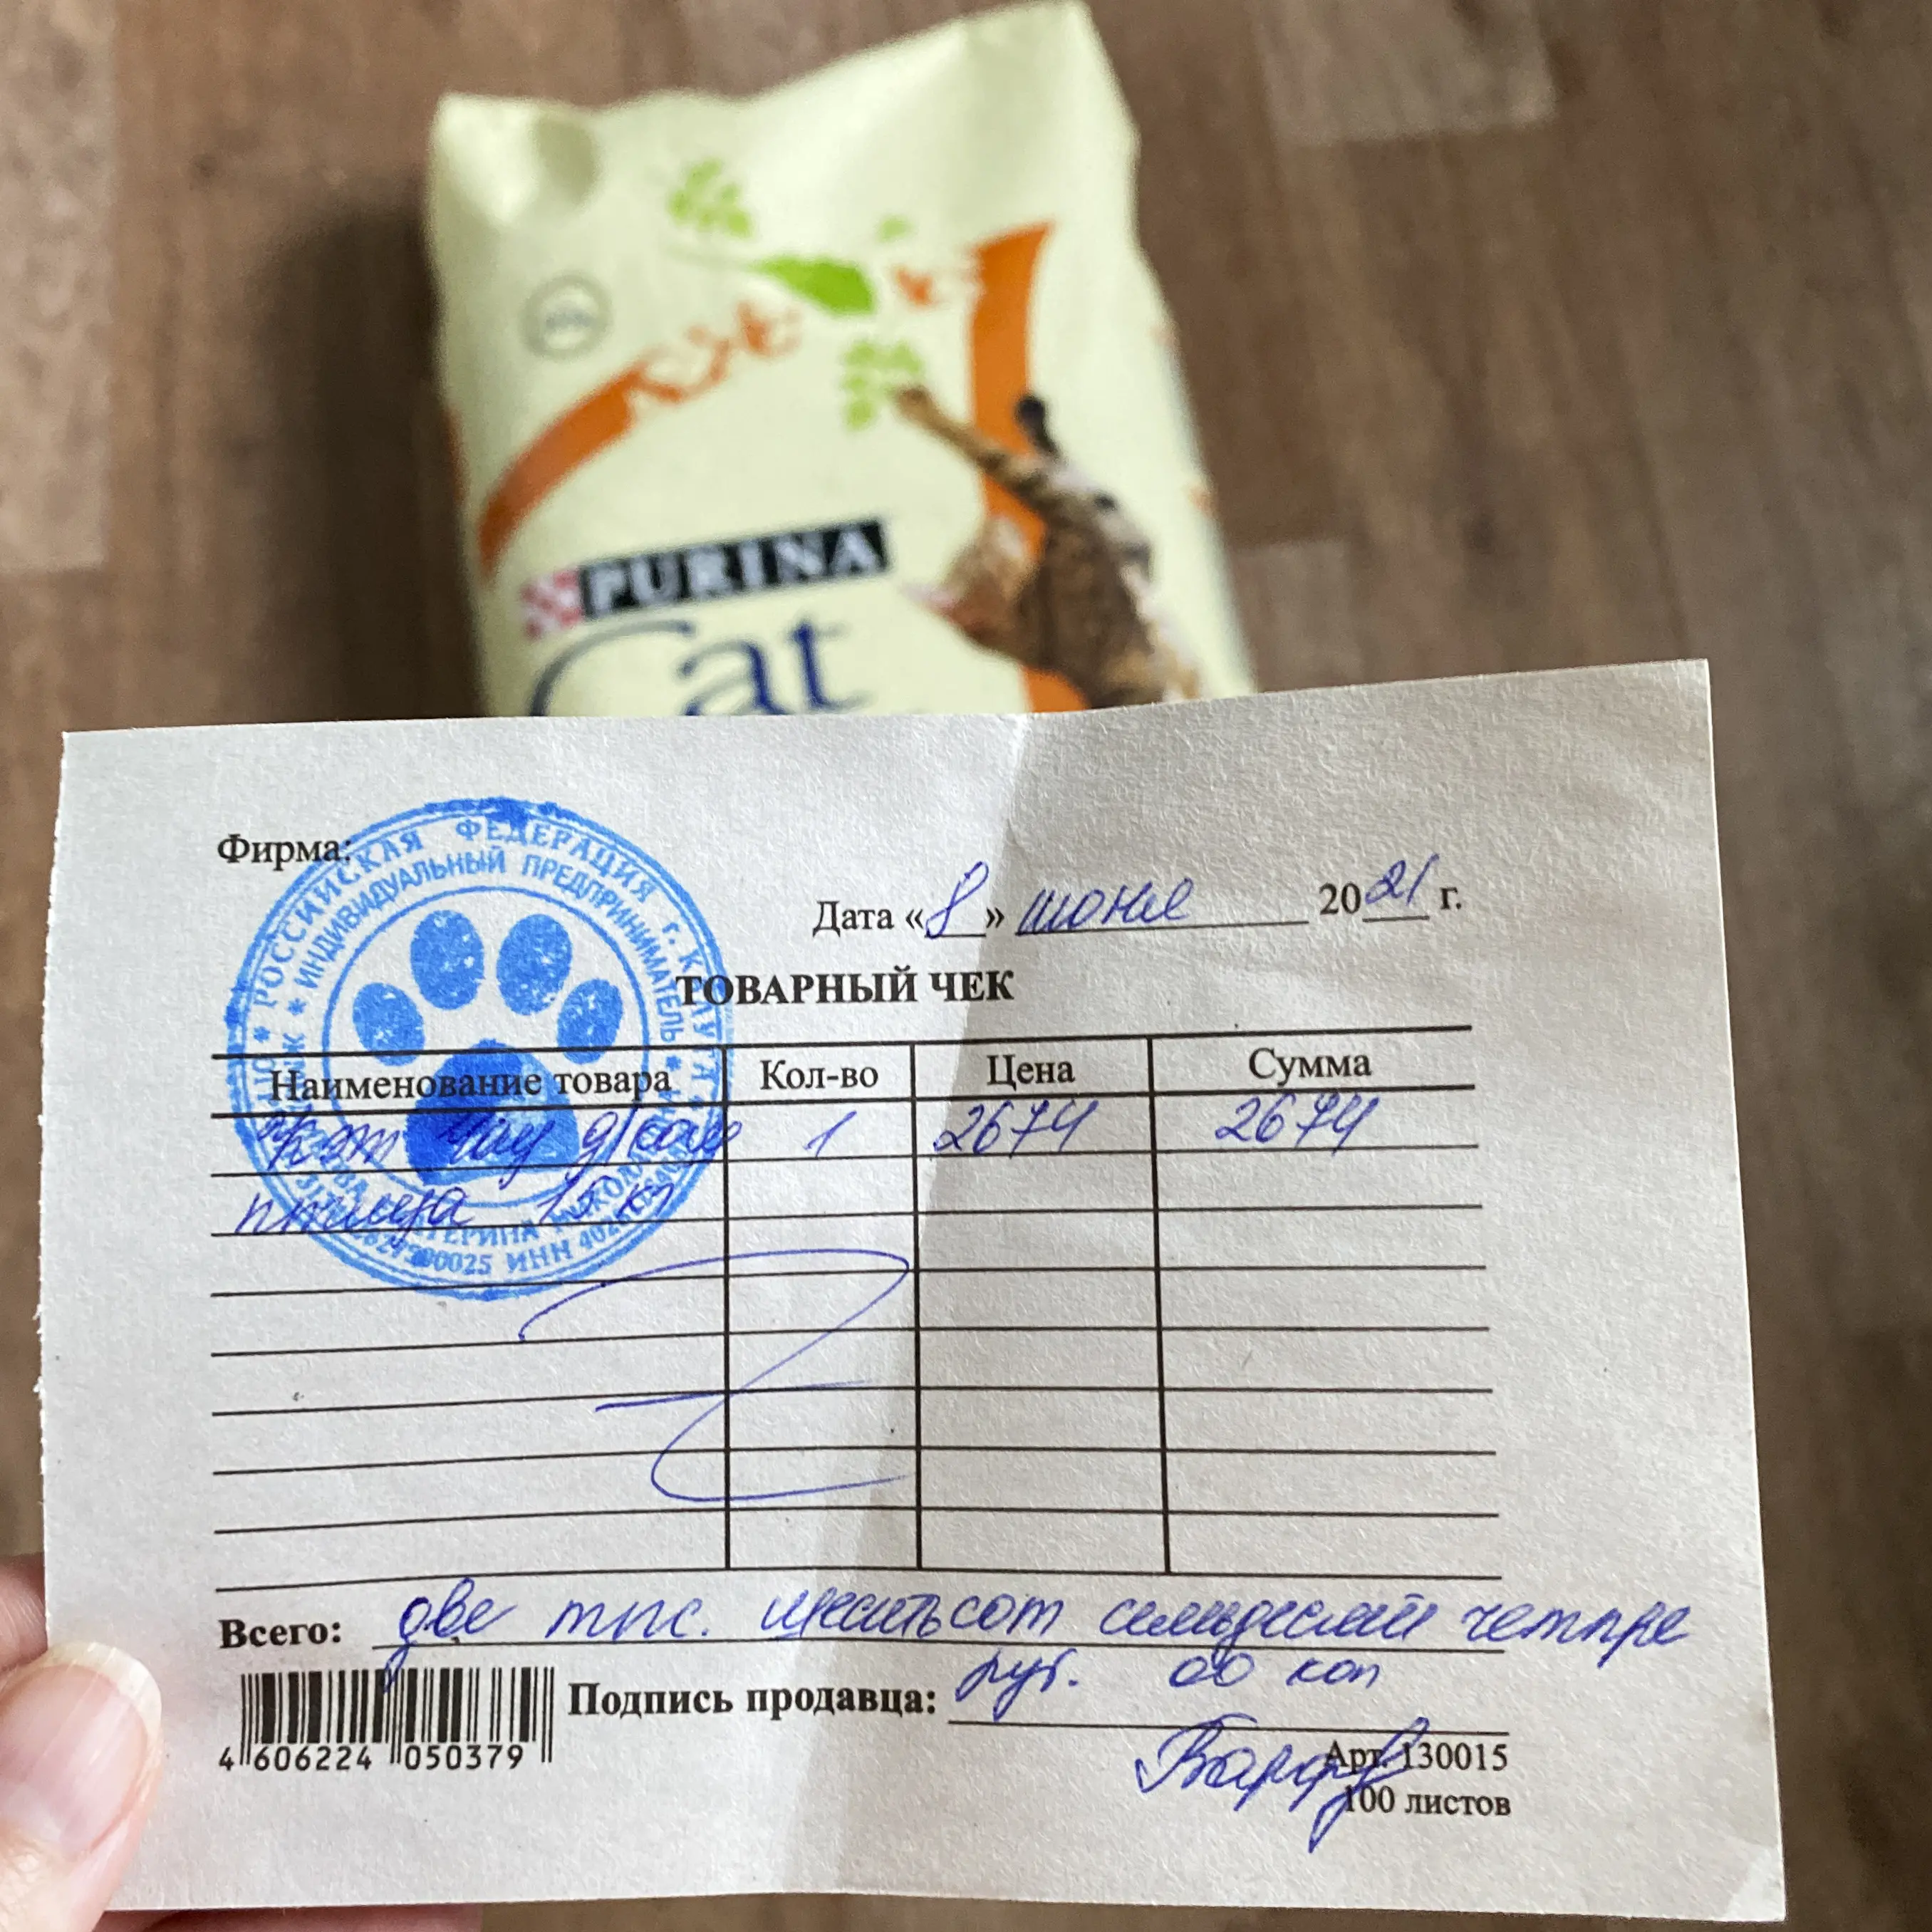 PURINA
Cat
Фирма:
РОССИЙСКАЯ ФЕДЕРАЦИЯ г. КАЛУГА
ИНДИВИДУАЛЬНЫЙ ПРЕДПРИНИМАТЕЛЬ
ИНН
Дата «8» июня 2021 г.
ТОВАРНЫЙ ЧЕК
Наименование товара Кол-во Цена Сумма
Кэт Чау 1 2674 2674
птица 15 кг
Всего: две тыс. шестьсот семьдесят четыре
руб. 00 коп
Подпись продавца:
4 606224 050379
Арт. 130015
100 листов